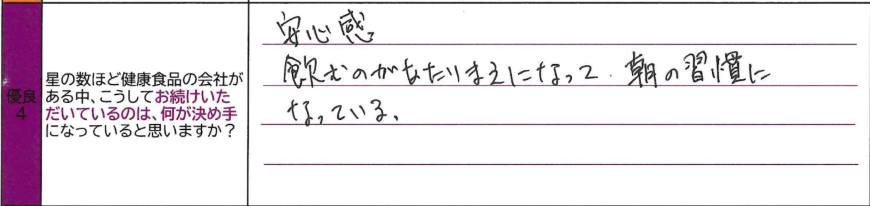 優良
4
星の数ほど健康食品の会社が
ある中、こうしてお続けいた
だいているのは、何が決め手
になっていると思いますか？
安心感
飲むのがあたりまえになって、朝の習慣に
なっている。